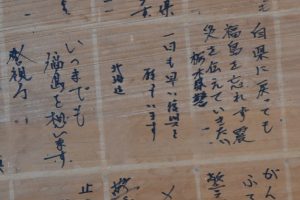 自県に戻っても
福島を忘れず震
災を伝えていきたい
栃木県警
一日も早い復興を
祈っています
北海道
いつまでも
福島を想います
警視庁
がん
ふ
警
止